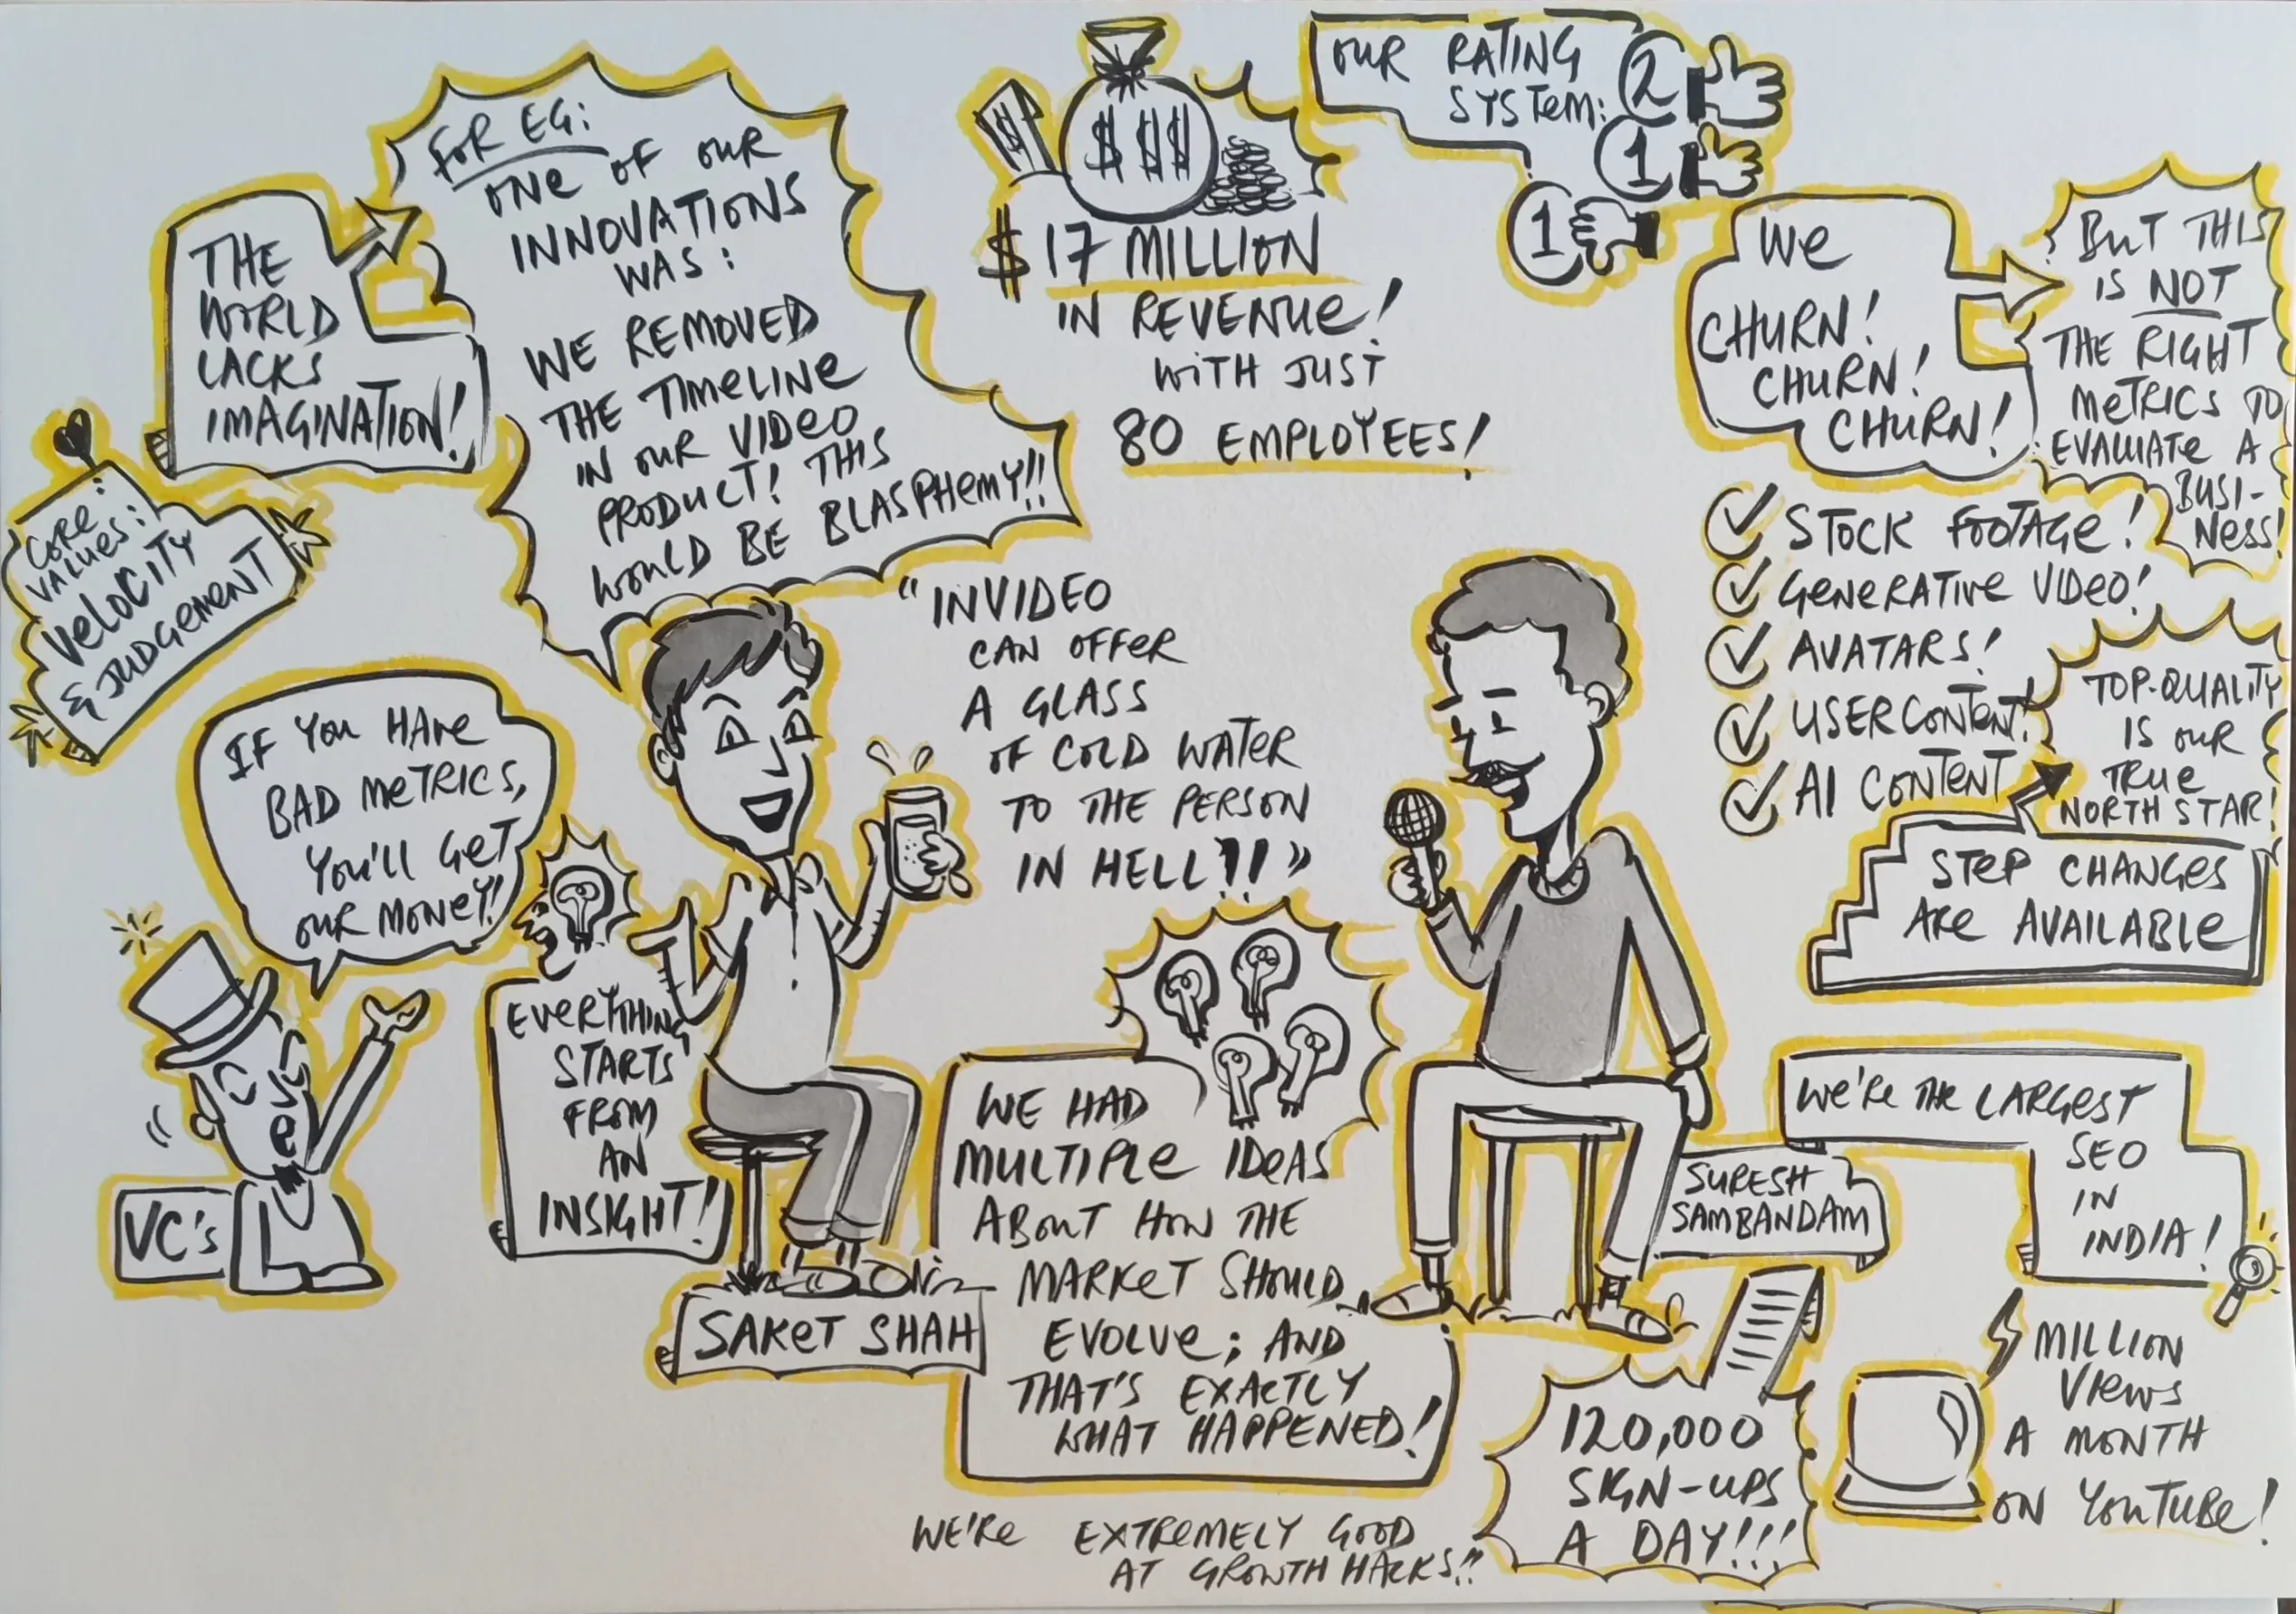 THE
WORLD
LACKS
IMAGINATION!
FOR EG:
ONE OF OUR
INNOVATIONS
WAS:
WE REMOVED
THE TIMELINE
IN OUR VIDEO
PRODUCT! THIS
WOULD BE BLASPHEMY!!
$ $$$
$17 MILLION
IN REVENUE!
WITH JUST
80 EMPLOYEES!
OUR RATING
SYSTEM:
2
1
1
WE
CHURN!
CHURN!
CHURN!
BUT THIS
IS NOT
THE RIGHT
METRICS TO
EVALUATE A
BUSI-
NESS!
CORE
VALUES:
VELOCITY
& JUDGEMENT
IF YOU HAVE
BAD METRICS,
YOU'LL GET
OUR MONEY!
VC's
EVERYTHING
STARTS
FROM
AN
INSIGHT!
"INVIDEO
CAN OFFER
A GLASS
OF COLD WATER
TO THE PERSON
IN HELL?!!"
STOCK FOOTAGE!
GENERATIVE VIDEO!
AVATARS!
USER CONTENT!
AI CONTENT
TOP-QUALITY
IS OUR
TRUE
NORTH STAR!
STEP CHANGES
ARE AVAILABLE
SAKET SHAH
WE HAD
MULTIPLE IDEAS
ABOUT HOW THE
MARKET SHOULD
EVOLVE; AND
THAT'S EXACTLY
WHAT HAPPENED!
SURESH
SAMBANDAM
WE'RE THE LARGEST
SEO
IN
INDIA!
120,000
SIGN-UPS
A DAY!!!
MILLION
VIEWS
A MONTH
ON YOUTUBE!
WE'RE EXTREMELY GOOD
AT GROWTH HACKS!!